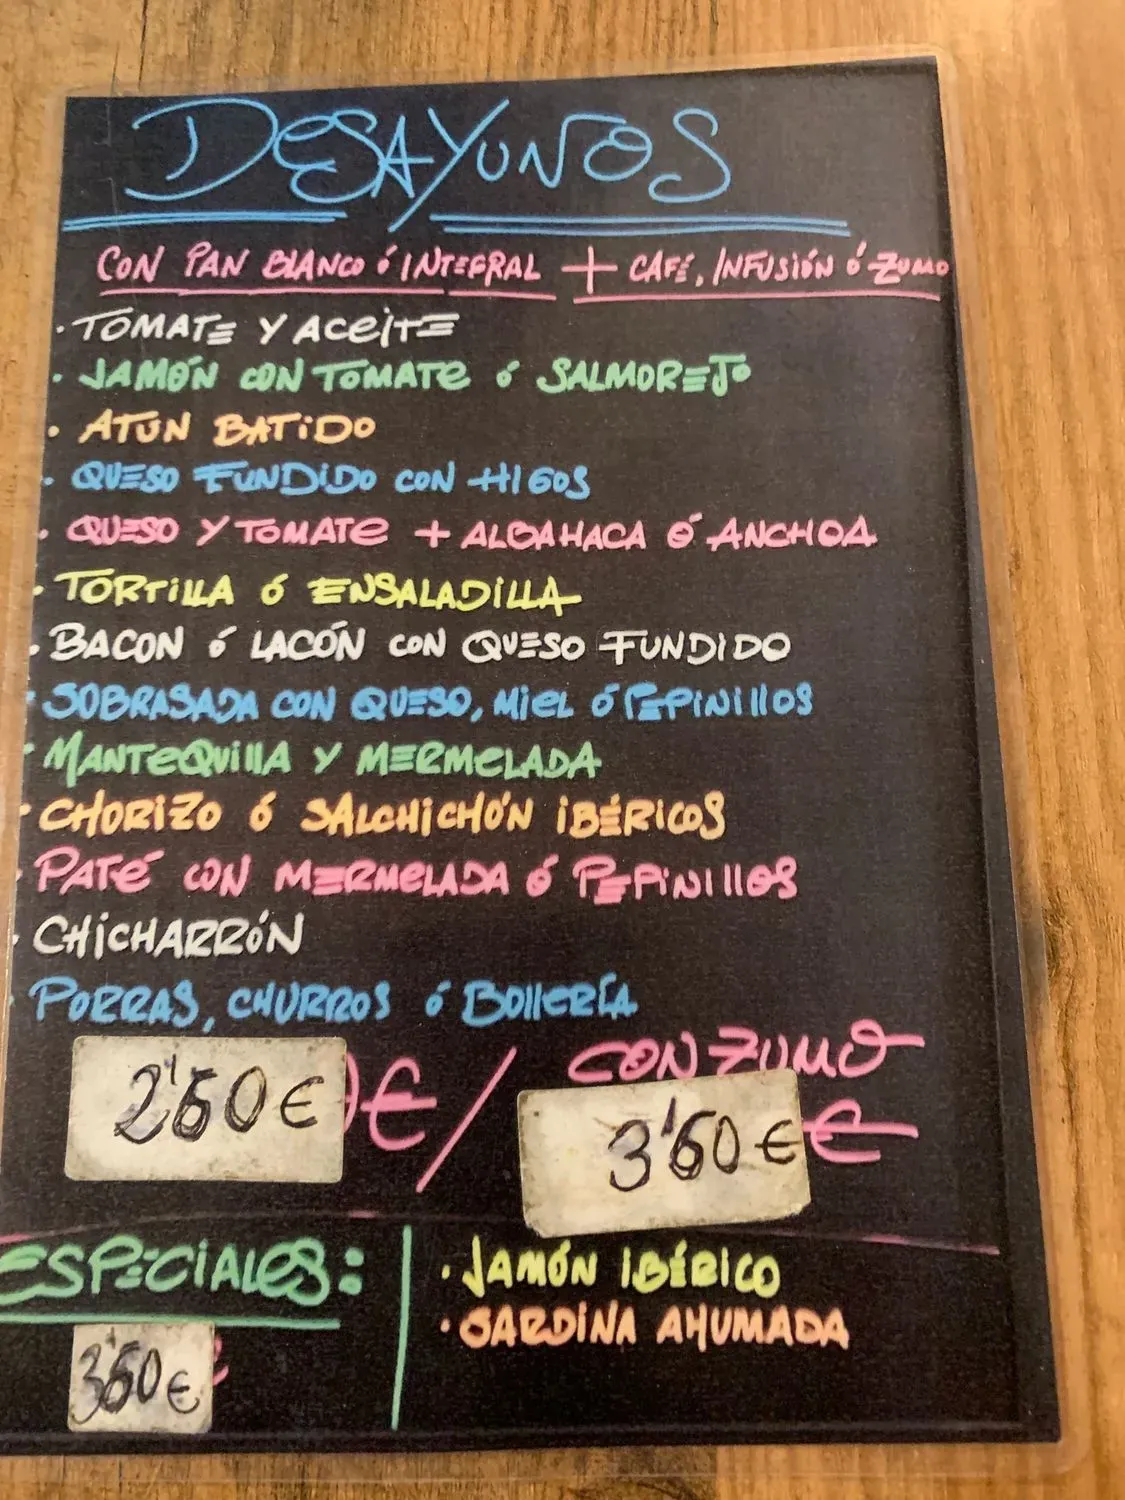 DESAYUNOS
CON PAN BLANCO ó INTEGRAL + CAFÉ, INFUSIÓN ó ZUMO
· TOMATE Y ACEITE
· JAMÓN CON TOMATE ó SALMOREJO
· ATUN BATIDO
· QUESO FUNDIDO CON HIGOS
· QUESO Y TOMATE + ALBAHACA ó ANCHOA
· TORTILLA ó ENSALADILLA
· BACON ó LACÓN CON QUESO FUNDIDO
· SOBRASADA CON QUESO, MIEL ó PEPINILLOS
· MANTEQUILLA Y MERMELADA
· CHORIZO ó SALCHICHÓN IBÉRICOS
· PATÉ CON MERMELADA ó PEPINILLOS
· CHICHARRÓN
· PORRAS, CHURROS ó BOLLERÍA
2'60€ €/ CON ZUMO
3'60€ €
ESPECIALES:
3'60€
· JAMÓN IBÉRICO
· SARDINA AHUMADA